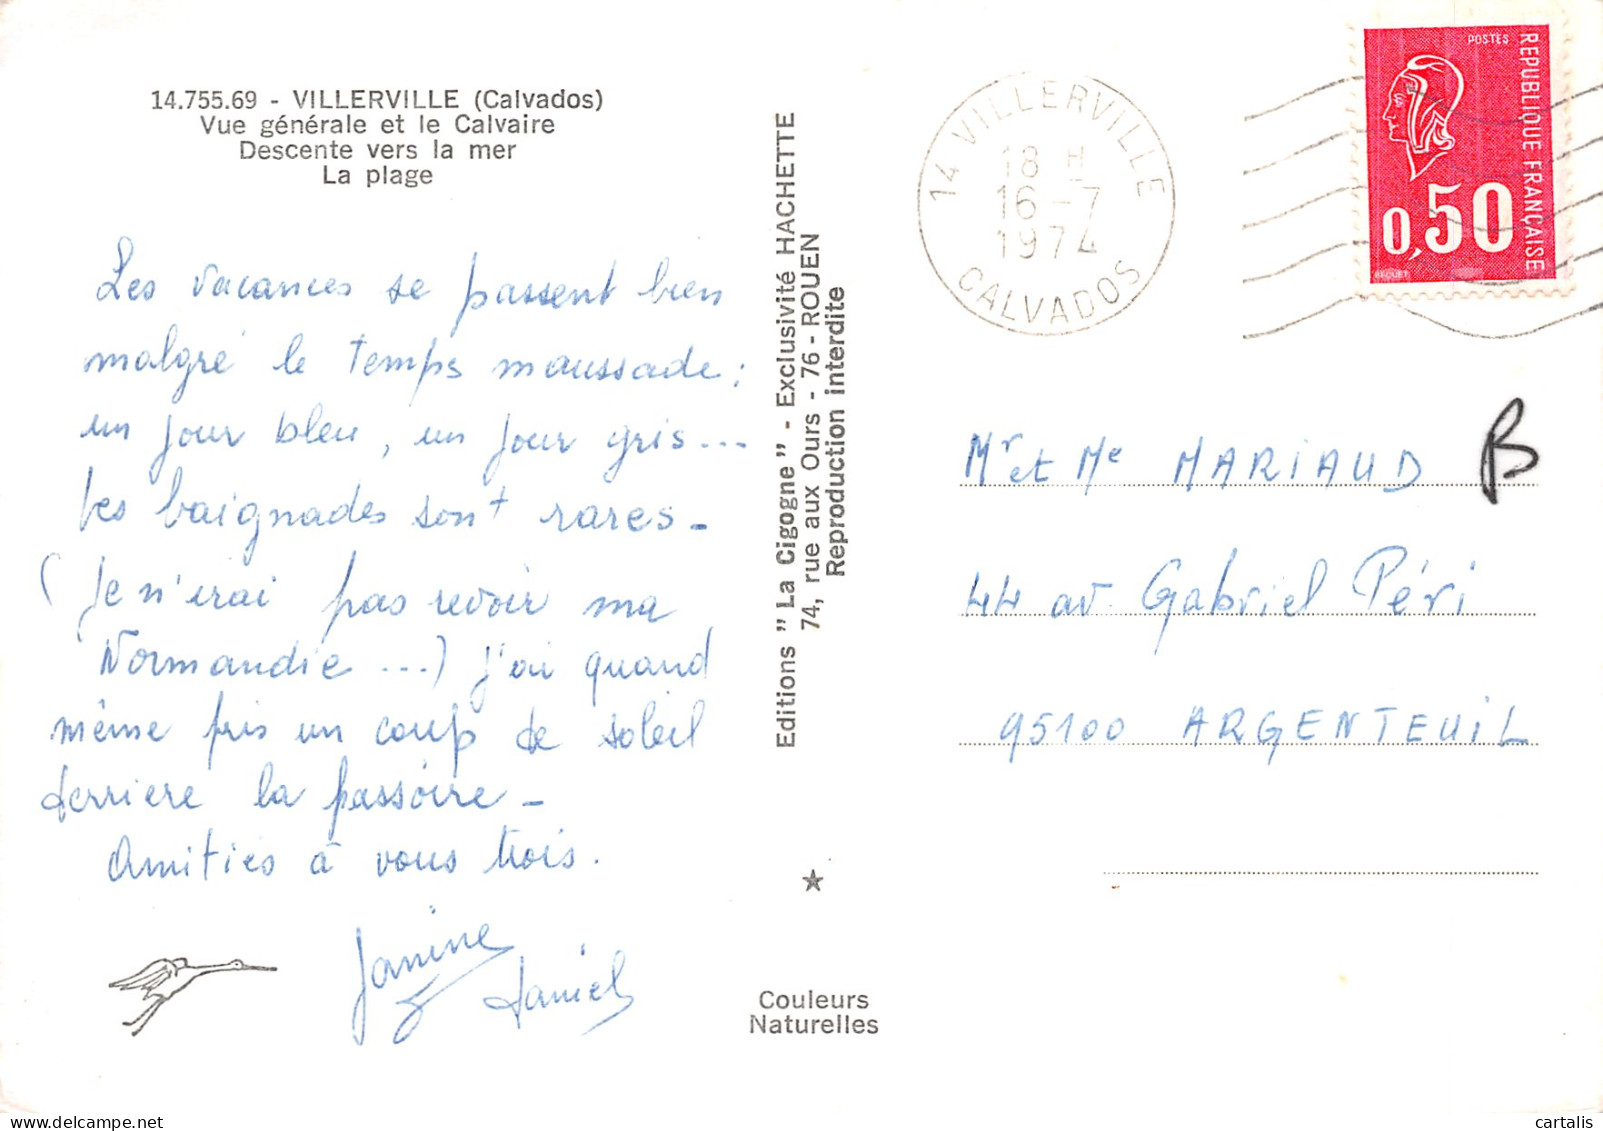 14.755.69 - VILLERVILLE (Calvados)
Vue générale et le Calvaire
Descente vers la mer
La plage
Les vacances se passent bien
malgré le temps maussade :
un jour bleu, un jour gris...
Les baignades sont rares -
(je n'irai pas revoir ma
Normandie ...) J'ai quand
même pris un coup de soleil
derrière la passoire -
Amitiés à vous trois.
Janine
Daniel
Editions "La Cigogne" - Exclusivité HACHETTE
74, rue aux Ours - 76 - ROUEN
Reproduction interdite
Couleurs
Naturelles
14 VILLERVILLE
18 H
16 -7
1974
CALVADOS
POSTES
REPUBLIQUE FRANÇAISE
0,50
BEQUET
Mr et Me MARIAUD B
44 av. Gabriel Péri
95100 ARGENTEUIL
cartalis
delcampe.net